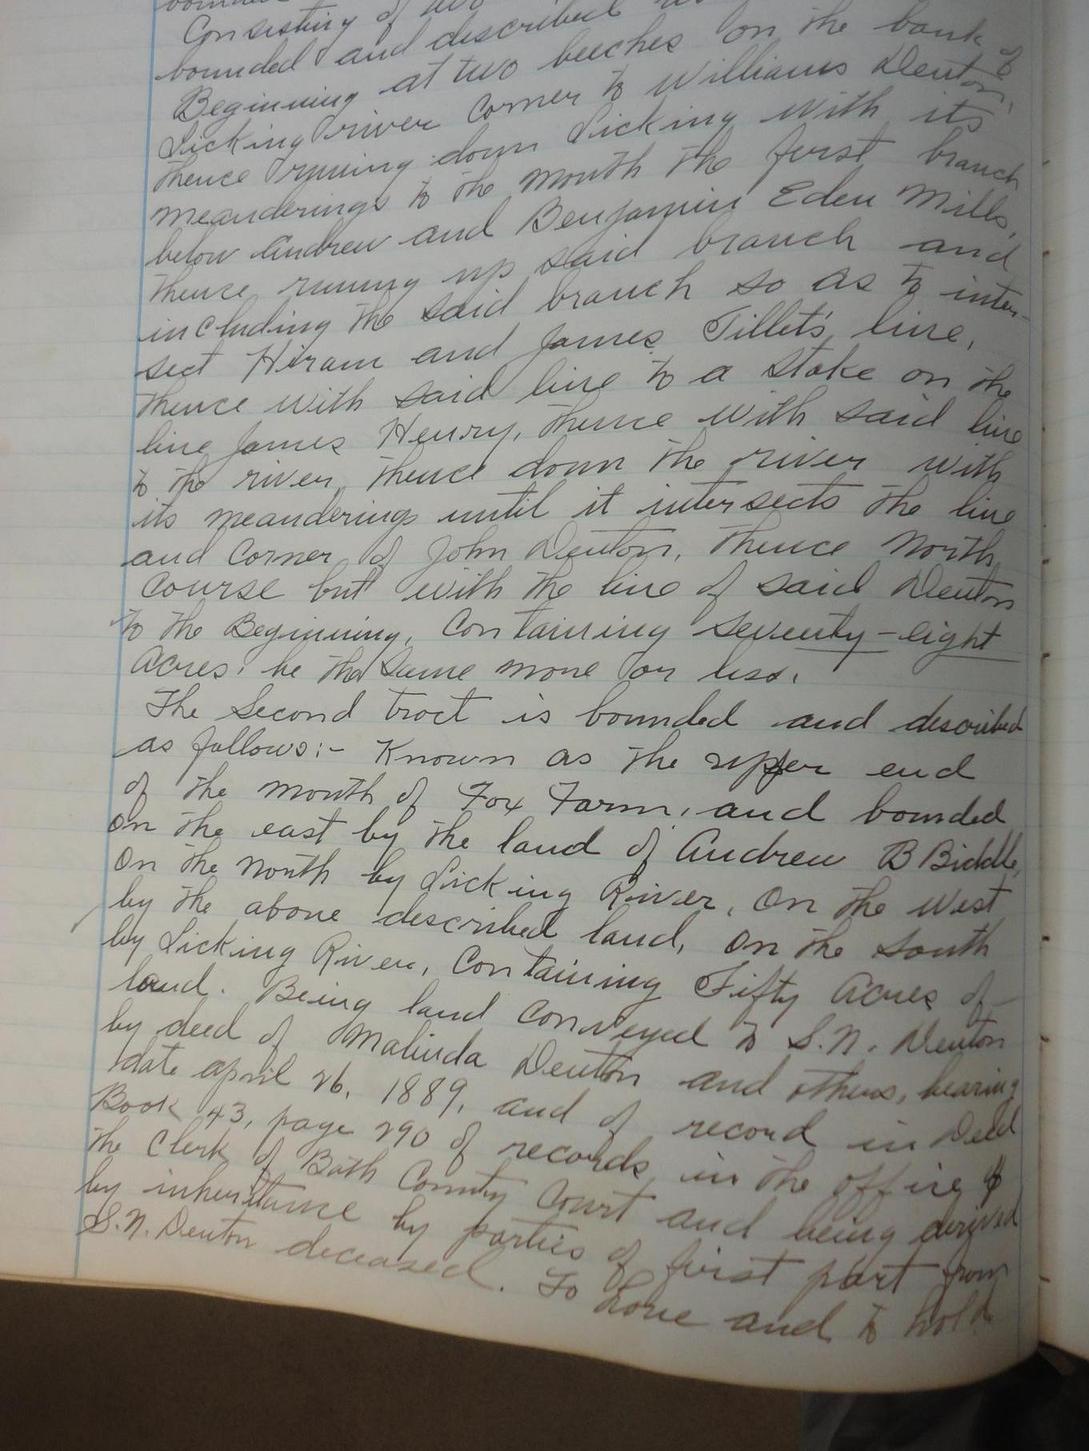 Consisting of two
bounded and described as
Beginning at two beeches on the bank of
Licking river corner to Williams Denton,
thence runing down Licking with its
meanderings to the mouth the first branch
below Andrew and Benjamin Eden Mills,
thence runing up said branch and
including the said branch so as to inter-
sect Hiram and James Tillet's line,
thence with said line to a stake on the
line James Henry, thence with said line
to the river, thence down the river with
its meanderings until it intersects the line
and corner of John Denton, thence North
course but with the line of said Denton
to the Beginning, Containing seventy-eight
Acres: be the same more or less.
The second tract is bounded and described
as follows:- Known as the upper end
of the mouth of Fox Farm, and bounded
on the east by the land of Andrew B Biddle,
On the North by Licking River, On the West
by the above described land, On the South
by Licking River, Containing Fifty Acres of
land. Being land conveyed to S.N. Denton
by deed of Malinda Denton and others, bearing
date april 26, 1889, and of record in Deed
Book 43, page 290 of records in the office of
the Clerk of Bath County Court and being derived
by inheritance by parties of first part from
S.N. Denton deceased. To have and to hold